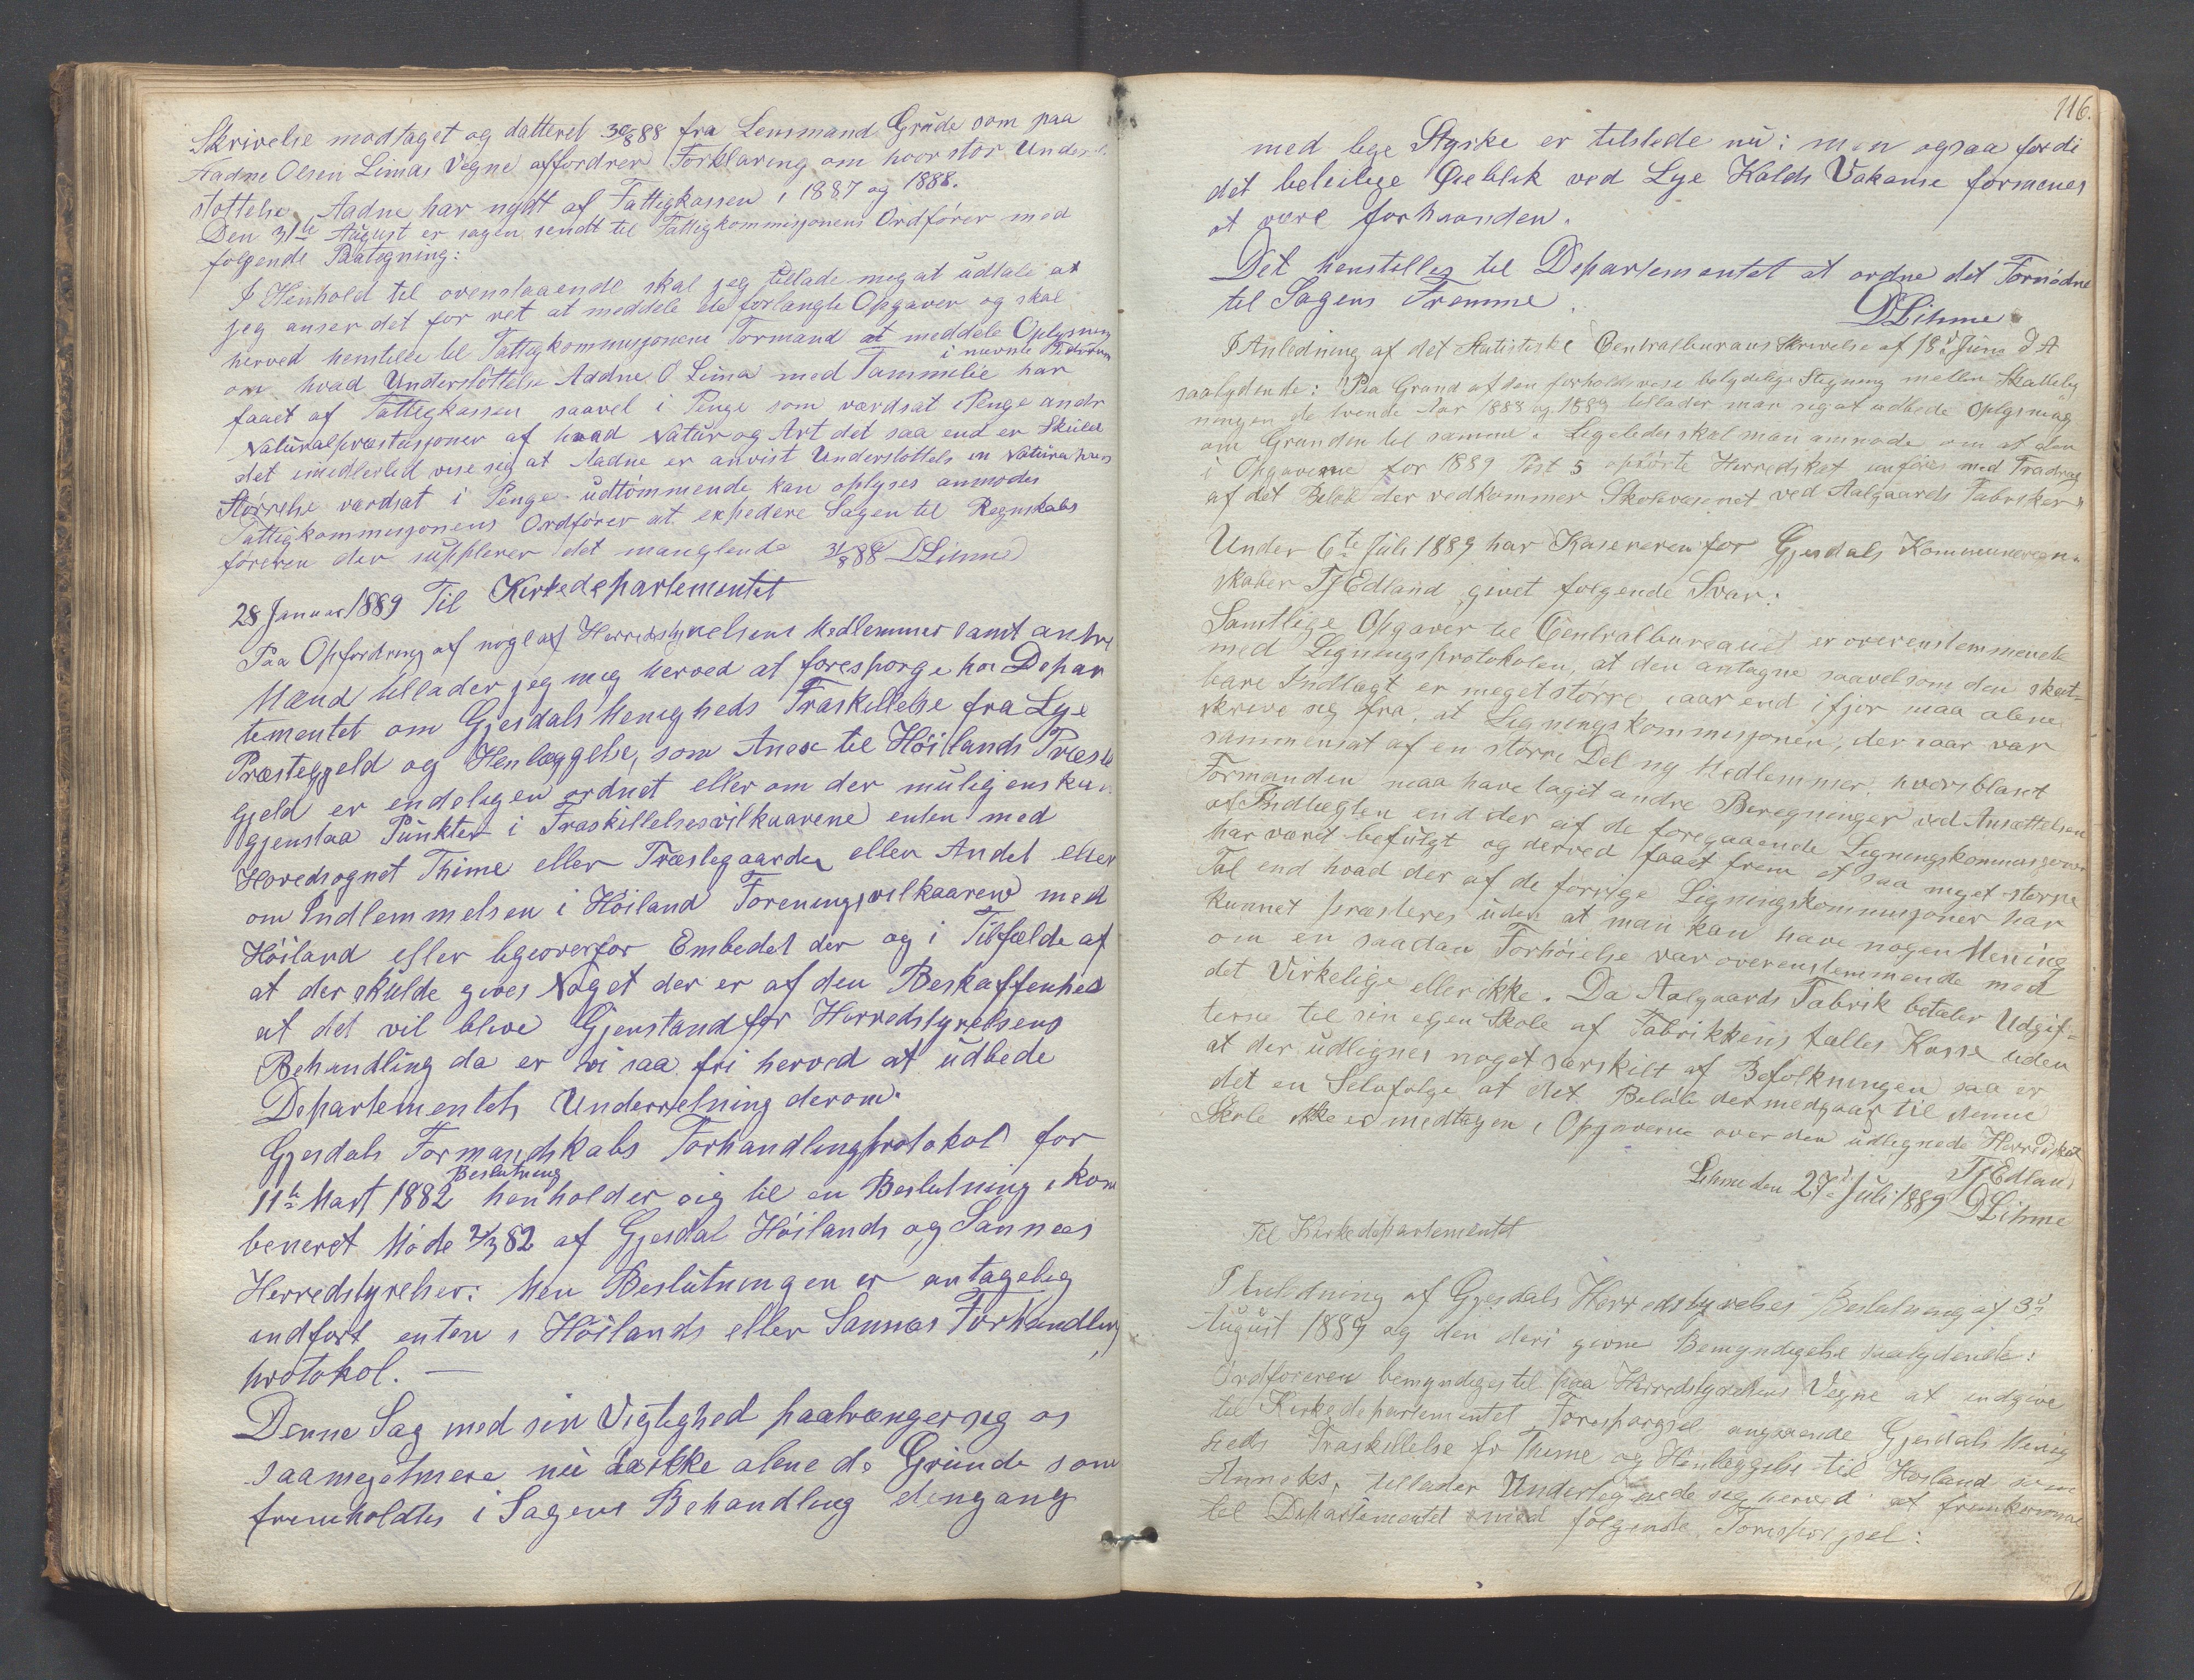 Skrivelse modtaget og datteret 30/8 88 fra Lensmand Grude som paa
Aadne Olsen Limas Vegne affordrer Forklaring om hvor stor Underst
støttelse Aadne har nydt af Fattigkassen i 1887 og 1888.
Den 31te August er sagen sendt til Fattigkommisjonens Ordfører med
følgende Paategning:
I Henhold til ovenstaaende skal jeg tillade mig at udtale at
jeg anser det for ret at meddele de forlangte Opgaver og skal
herved henstille til Fattigkommisjonens Formand at meddele Oplysning
i nævnte Tidsrum
om hvad Understøttelse Aadne O Lima med Fammelie har
faaet af Fattigkassen saavel i Penge som værdsat i Penge andr
Naturalpræstasjoner af hvad Natur og Art det saa end er Skulde
det imedlertid vise sig at Aadne er anvist Understøttels in Natura hvis
Størrelse værdsat i Penge udtømmende kan oplyses anmodes
Fattigkommisjonens Ordfører at expedere Sagen til Regnskabs
føreren der supplerer det manglende 31/8 88 DLihme
28 Januar 1889 Til Kirkedepartementet
Paa Opfordring af nogle af Herredstyrelsens Medlemmer samt andre
Mænd tillader jeg mig herved at forespørge hos Depar
tementet om Gjesdals Menigheds Fraskillelse fra Lye
Præstegjeld og Henlæggelse, som Anex til Höilands Præste
gjeld er endeligen ordnet eller om der muligens kan
gjenstaa Punkter i Fraskillelsesvilkaarene enten med
Hovedsognet Thime eller Præstegaarden eller Andet eller
om Indlemmelsen i Höiland Foreningsvilkaarene med
Höiland eller ligeoverfor Embedet der og i Tilfælde af
at der skulde gives Noget der er af den Beskaffenhed
at det vil blive Gjenstand for Herredstyrelsens
Behandling da er vi saa fri herved at udbede
Departementets Underretning derom.
Gjesdals Formandskabs Forhandlingsprotokol for
Beslutning
11te Mart 1882 henholder sig til en Beslutning i kom
beneret Møde 2/3 82 af Gjesdal Höilands og Sannes
Herredstyrelser: Men Beslutningen er antagelig
indført enten i Höilands eller Sannæs Forhandling
protokol. —
Denne Sag med sin Vigtighed paatrænger sig os
saameget mere nu da ikke alene de Grunde som
fremholdtes i Sagens Behandling dengang
116.
med lige Styrke er tilstede nu: men ogsaa fordi
det beleilige Øieblik ved Lye Kalds Vakanse formenes
at være forhaanden.
Det henstilles til Departementet at ordne det Fornødne
til Sagens Fremme.
DLihme
I Anledning af det Statistiske Centralbureaus Skrivelse af 18de Juni d A
saalydende: "Paa Grund af den forholdsvise betydelige Stegning mellem Skattelig
ningen de tvende Aar 1888 og 1889 tillader man sig at udbede Oplysning
om Grunden til samme. Ligeledes skal man anmode om at den
i Opgaverne for 1889 Post 5 opførte Herredskat anføres med Fradrag
af det Beløb der vedkommer Skolevæsenet ved Aalgaards Fabriker"
Under 6te Juli 1889 har Kasereren for Gjesdals Kommunevæen-
skaber TjEdland givet følgende Svar:
Samtlige Opgaver til Centralbureauet er overenstemmende
med Ligningsprotokolen, at den antagne saavelsom den skat-
bare Indtægt er meget større iaar end ifjor maa alene
skrive sig fra, at Ligningskommisjonen, der iaar var
sammensat af en større Del ny Medlemmer, hvoriblant
Formanden maa have taget andre Beregninger ved Ansættelsen
af Indtægten end der af de foregaaende Ligningskommisjoner
har været befulgt og derved faaet frem et saa meget større
Tal end hvad der af de forrige Ligningskommisjoner har
kunnet præsteres uden at man kan have nogen Mening
om en saadan Forhöielse var overenstemmende med
det Virkelige eller ikke. Da Aalgaards Fabrik betaler Udgif-
terne til sin egen Skole af Fabrikkens fælles Kasse uden
at der udlignes noget særskilt af Befolkningen saa er
det en Selvfølge at det Beløb der medgaar til denne
Skole ikke er medtagen i Opgaverne over den udlignede Herredskat
TjEdland
Lihme den 27de Juli 1889 DLihme
Til Kirkedepartementet
I Anledning af Gjesdals Herredstyrelses Beslutning af 3de
August 1889 og den deri givne Bemyndigelse saalydende:
Ordføreren bemyndiges til paa Herredstyrelsens Vegne at indgive
til Kirkedepartementet Forespørgsel angaaende Gjesdals Menig
heds Fraskillelse fr Thime og Henlæggelse til Høiland som
Anneks, tillader Undertegnede sig herved at fremkomme
til Departementet med følgende Forespørgsel: